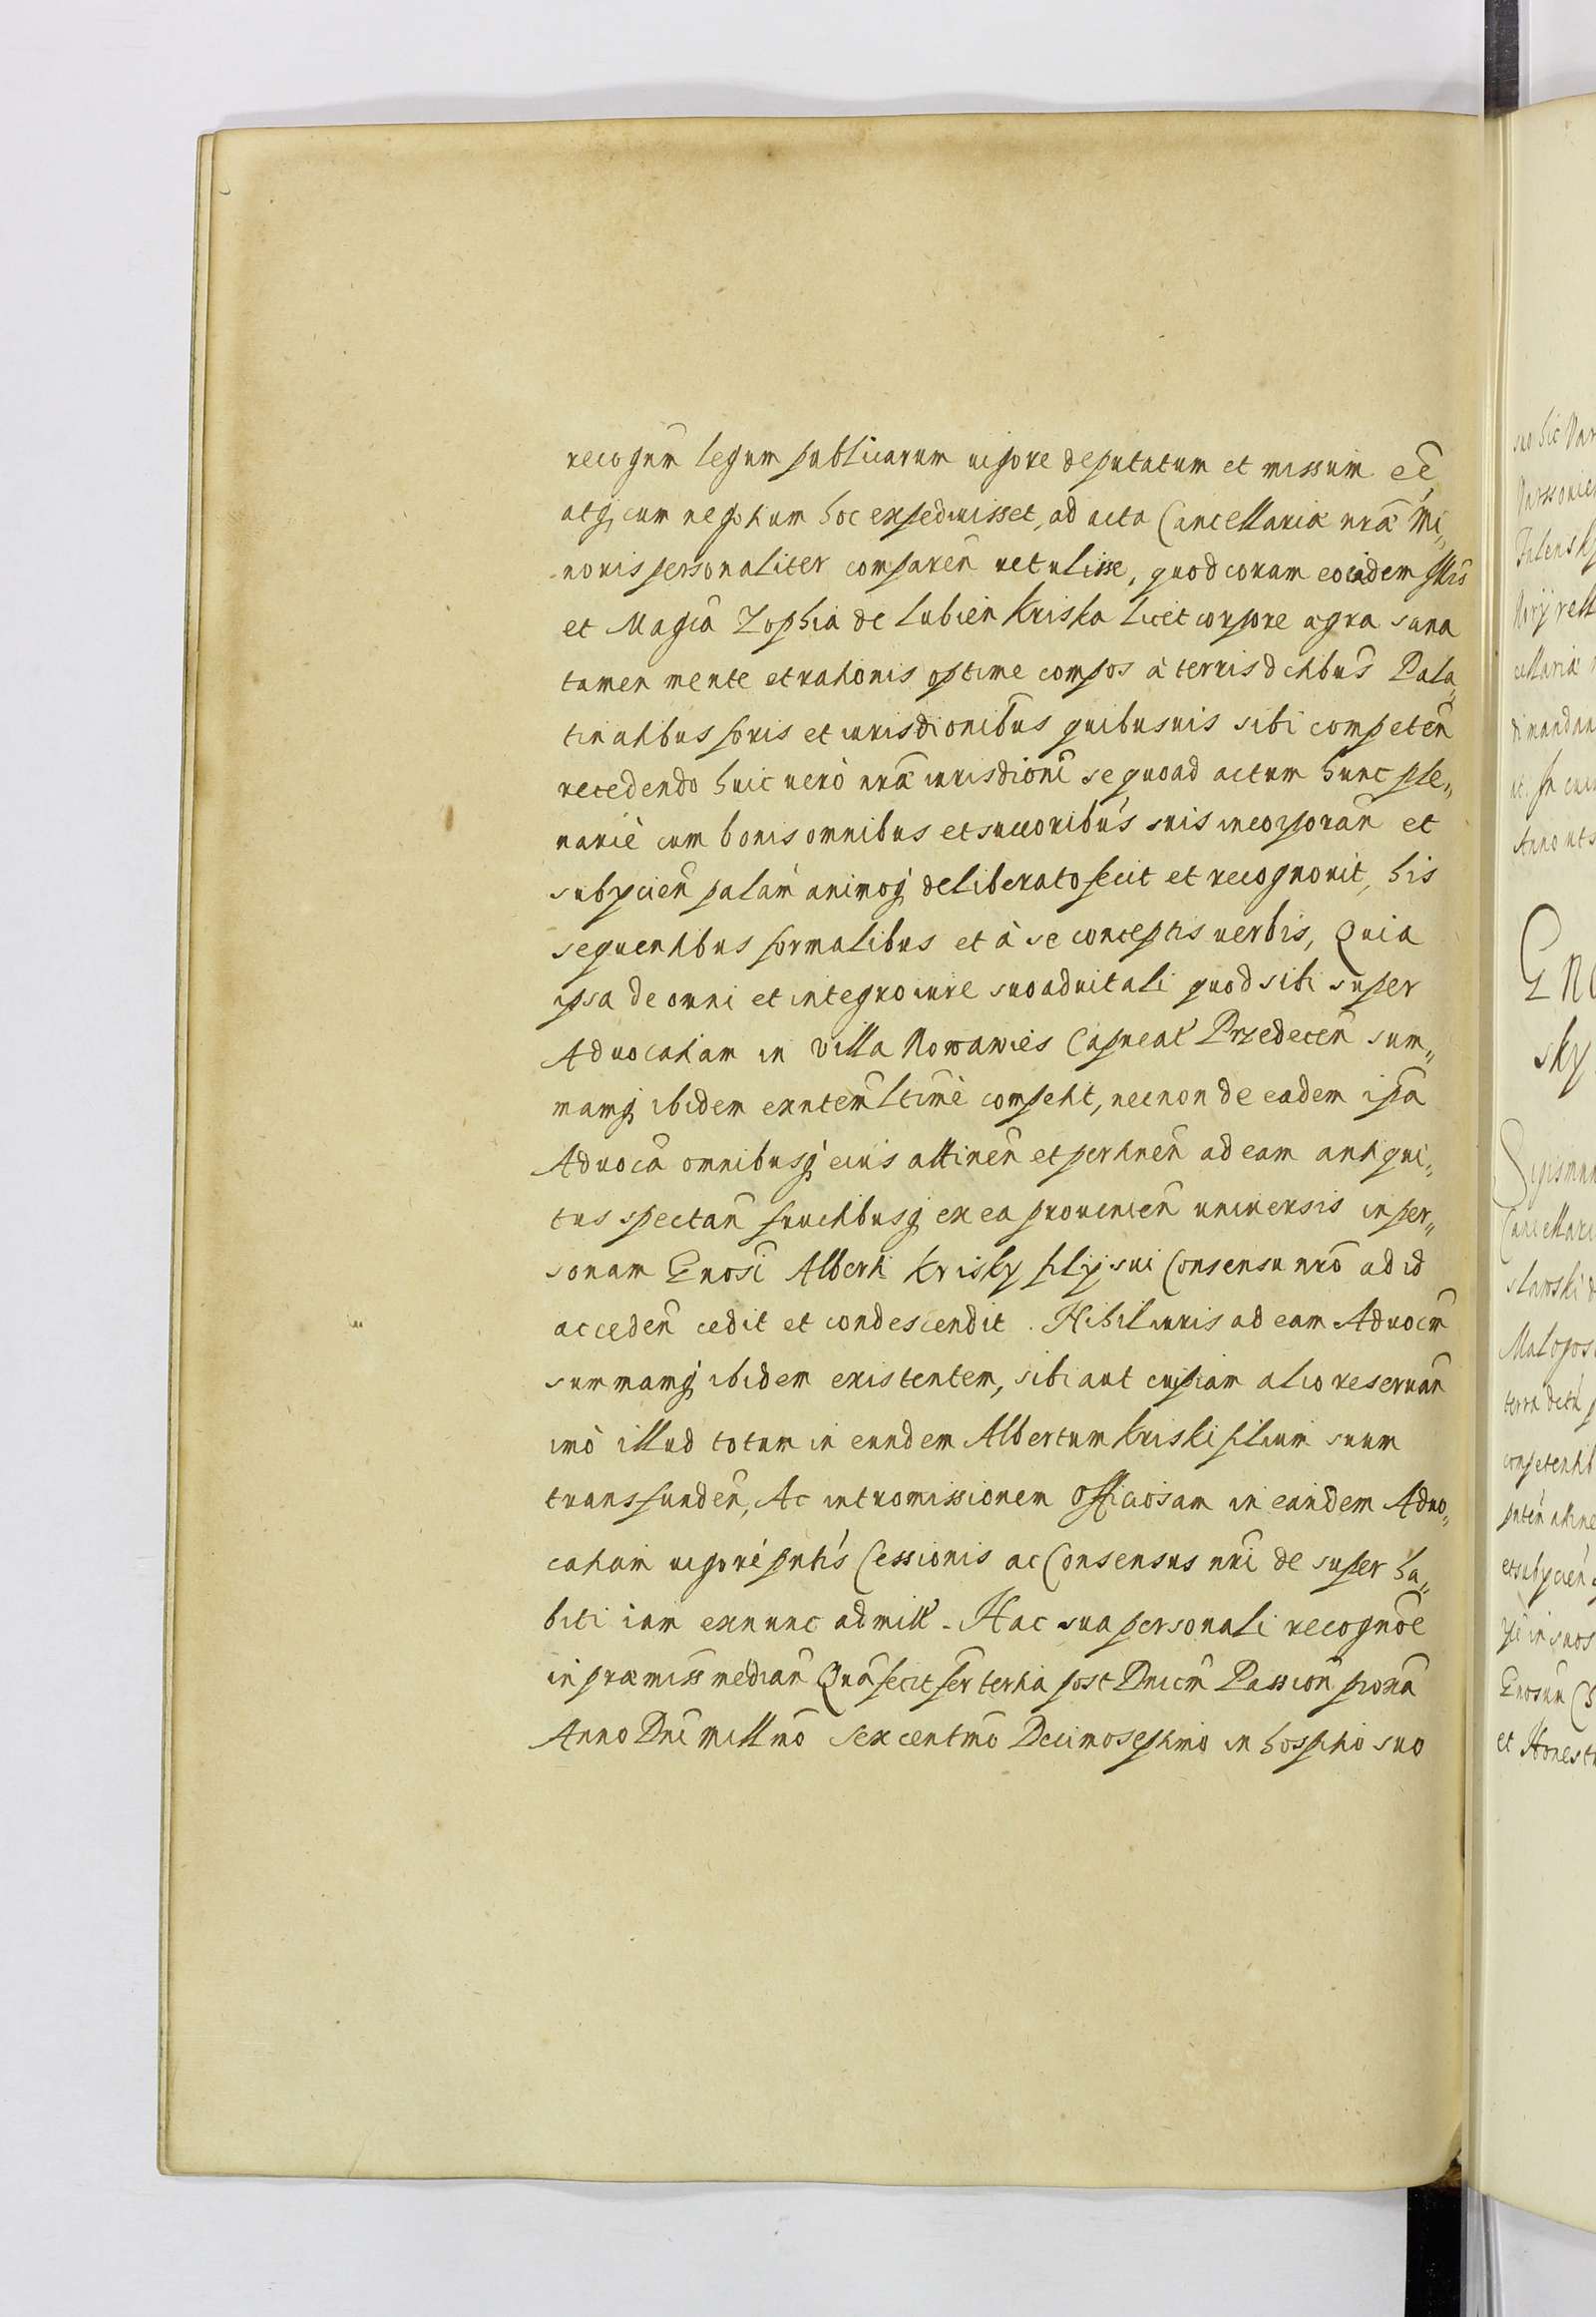 recognm legum publicarum vigore deputatum et missum eē
atq; cum negotium hoc expediuisset, ad acta Cancellariæ nræ Mi„
noris personaliter comparen retulisse, quod coram eodem Illris
et Magca Zophia de Lubien Kriska licet corpore ægra sana
tamen mente et rationis optime compos à terris dictibus Pala„
tinatibus foris et iurisdionibus quibusuis sibi competen
recedendo huic uerò nræ iurisdioni se quoad actum hunc ple„
nariè cum bonis omnibus et succoribus suis incorporan et
subycien palam animoq; deliberato fecit et recognouit, his
sequentibus formalibus et à se conceptis uerbis, Quia
ipsa de omni et integro iure suo aduitali quod sibi super
Aduocatiam in Villa Nowawies Capneat Przedecen sum„
mamq; ibidem exntem ltimè competit, necnon de eadem ipa
Aduoca omnibusq; eius attinen et pertinen ad eam antiqui„
tus spectan fructibusq; ex ea prouenien uniuersis in per„
sonam Gnosi Alberti Krisky filij sui Consensu nro ad id
acceden cedit et condescendit. Nihil iuris ad eam Aduocm
summamq; ibidem existentem, sibi aut cuipiam alio reseruan
imò illud totum in eundem Albertum Kriski filium suum
transfunden, Ac intromissionem officiosam in eandem Aduo„
catiam uigore pntis Cessionis ac Consensus nri de super ha„
biti iam exnunc admitt. Hac sua personali recognoe
in præmiss median Qua fecit fer tertia post Dnicm Passion proxa
Anno Dni millmo Sexcentmo Decimoseptimo in hospitio suo